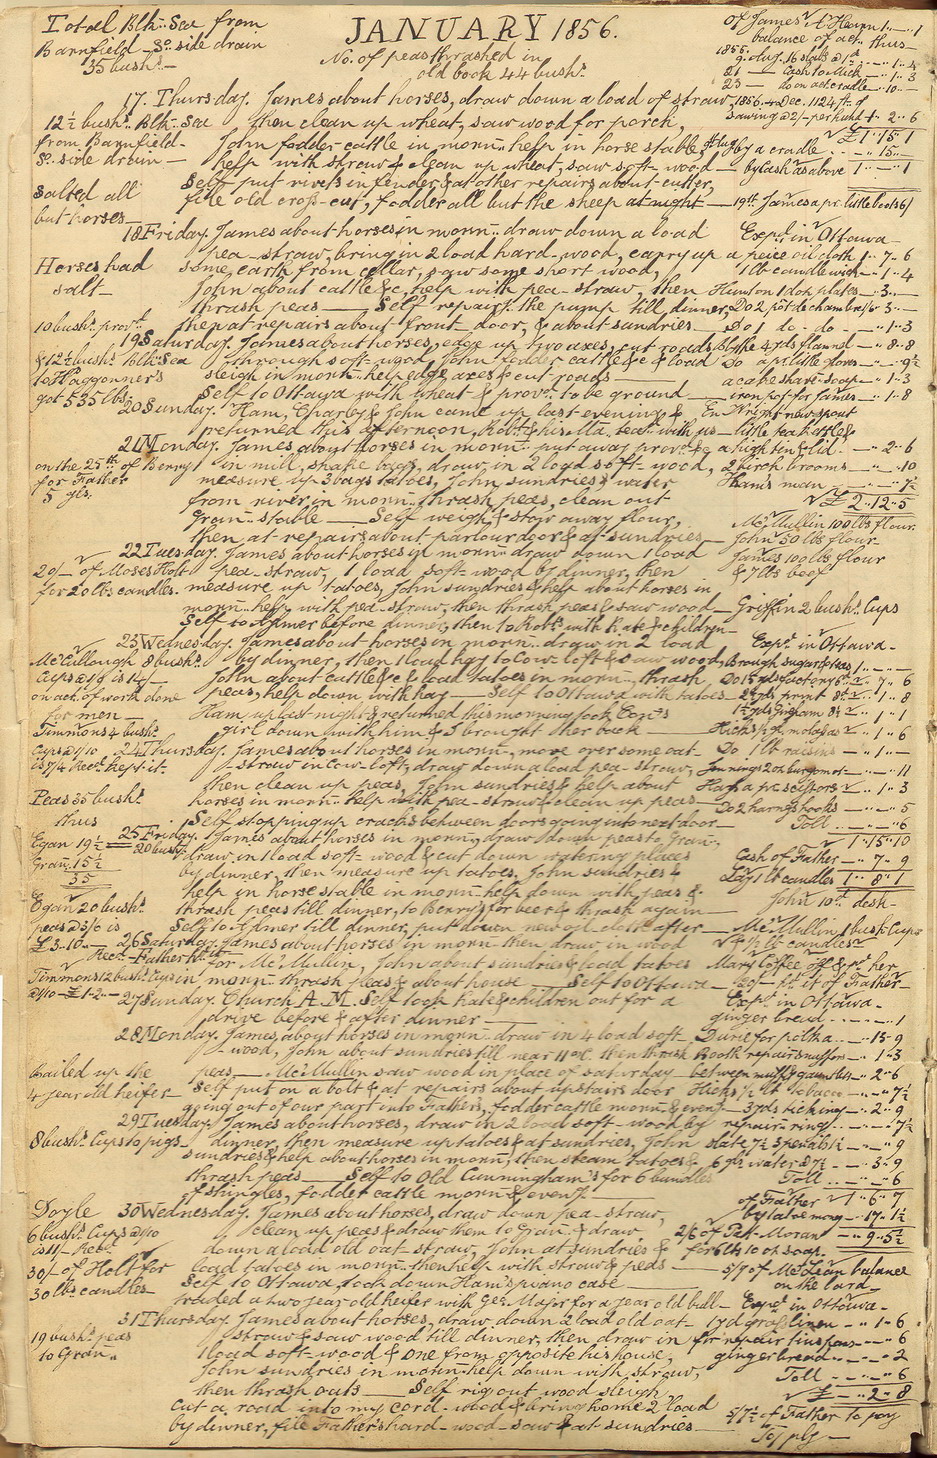 JANUARY 1856.
No. of peas thrashed in
old book 44 bushs.
Total Blk: Sea from
Barnfield - So. side drain
35 bushs. -
12½ bushs. Blk: Sea
from Barnfield -
So. side drain -
Salted all
but horses -
Horses had
salt -
10 bushs. provr.
& 12½ bushs. Blk: Sea
to Haggonner's
got 535 lbs.
on the 25th of Benry
for Father
5 gls.
20/- of Moses Holt
for 20 lbs candles.
McCullough 8 bushs.
Cups @1/6 is 12/-
on act. of work done
for men
Timmons 4 bushs.
Cups @1/10
is 7/4 Recd. kept it.
Peas 35 bushs.
thus
Egan 19½ = 20 bush
Gran. 15½
35
Egan 20 bushs.
peas @3/6 is
£3-10-
Recd. Father
Timmons 12 bush. Cups
@1/10 - £1-2-
Bailed up the
4 year old heifer
8 bush. Cups to pigs
Doyle
6 bushs. Cups @1/10
is 11/- Recd.
30/- of Holt for
30 lbs candles -
19 bushs. peas
to Gran.
17. Thursday. James about horses, draw down a load of straw,
then clean up wheat, saw wood for porch,
John fodder cattle in morn: help in horse stable,
help with straw & clean up wheat, saw soft-wood -
Self put rivets in fender, & at other repairs about cutter,
file old cross-cut, fodder all but the sheep at night -
18 Friday. James about horses in morn: draw down a load
pea-straw, bring in 2 load hard-wood, carry up
some earth from cellar, saw some short wood,
John about cattle &c, help with pea-straw, then
thrash peas - Self repairg. the pump till dinner,
then at repairs about front door, & about sundries -
19 Saturday. James about horses, edge up two axes, cut roads
through soft-wood, John fodder cattle &c & load
sleigh in morn: help edge axes & cut roads -
Self to Ottawa with wheat & provr. to be ground -
20 Sunday. Ham, Charley & John came up last evening &
returned this afternoon, Robt. & his Ma. tea'd with us -
21 Monday. James about horses in morn: put away provr. &c
in mill, shake bags, draw in 2 load soft-wood,
measure up 3 bags tatoes, John sundries & water
from river in morn: thrash peas, clean out
Gran: stable - Self weigh & stow away flour,
then at repairs about parlour door & at sundries -
22 Tuesday. James about horses in morn: draw down 1 load
pea-straw, 1 load soft-wood by dinner, then
measure up tatoes, John sundries & help about horses in
morn: help with pea-straw, then thrash peas & saw wood -
Self to Aylmer before dinner, then to Robt's with Kate & children -
23 Wednesday. James about horses in morn: draw in 2 load
by dinner, then 1 load hay to Cow-loft & saw wood,
John about cattle &c & load tatoes in morn: thrash
peas, help down with hay - Self to Ottawa with tatoes
Ham up last night & returned this morning took Con's
girl down with him & I brought her back -
24 Thursday. James about horses in morn: move over some oat
-straw in Cow-loft, draw down a load pea-straw,
then clean up peas, John sundries & help about
horses in morn: help with pea-straw & clean up peas -
Self stopping up cracks between doors going into next door -
25 Friday. James about horses in morn: draw down peas to Gran:,
draw in 1 load soft-wood & cut down watering places
by dinner, then measure up tatoes, John sundries &
help in horse stable in morn: help down with peas &
thrash peas till dinner, to Benry's for beer & thrash again -
Self to Aylmer till dinner, put down new oil-cloth after -
26 Saturday. James about horses in morn: then draw in wood
for McMullin, John about sundries & load tatoes
in morn: thrash peas & about house - Self to Ottawa -
27 Sunday. Church A.M. Self took Kate & children out for a
drive before & after dinner -
28 Monday. James about horses in morn: draw in 4 load soft
-wood, John about sundries till near 11 oC. then thrash
peas - McMullin saw wood in place of Saturday -
Self put on a bolt & at repairs about upstairs door
going out of our part into Father's, fodder cattle morn: & eveng -
29 Tuesday. James about horses, draw in 2 load soft-wood by
dinner, then measure up tatoes & at sundries, John
sundries & help about horses in morn: then steam tatoes &
thrash peas - Self to Old Cunningham's for 6 bundles
of shingles, fodder cattle morn: & eveng. -
30 Wednesday. James about horses, draw down pea-straw,
clean up peas & draw them to Gran: & draw
down a load old oat-straw, John at sundries &
load tatoes in morn: then help with straw & peas -
Self to Ottawa, took down Ham's piano case -
traded a two year old heifer with Geo. Major for a year old bull -
31 Thursday. James about horses, draw down 2 load old oat-
straw & saw wood till dinner, then draw in
1 load soft-wood & one from opposite his house,
John sundries in morn: help down with straw,
then thrash oats - Self rig out wood sleigh
cut a road into my cord-wood & bring home 2 load
by dinner, file Father's hard-wood-saw & at sundries -
of James A'Hearn 1....1
balance of act. thus -
1855.
21 - Cash to Mick - 1..3
23 - do on act. cradle - 10..
1856. Dec. 1124 ft. of
sawing @2/- per hund 1..2..6
£1..15..1
by a cradle .. - 15..
by Cash as above 1..-..1
19th. James a pr. little boots 6/
Expd. in Ottawa -
a peice oil cloth 1..7..6
1 lb candlewick - 1..4
Hunton 1 doz plates - 3..
Do 2 pot de chambre 1/6 3..
Do 1 do. do - 1..3
Blythe 4 yds flannel - 8..8
Do a pr. little gloves - 9½
a cake shave-soap - 1..3
iron pot for James - 1..8
En. Wright new spout
little tea kettle &
a high tin & lid - 2..6
2 birch brooms - 10
Ham's man - 7½
£2..12..5
McMullin 100 lbs flour.
John 50 lbs flour
James 100 lbs flour
& 7 lbs beef
Griffin 2 bushs. Cups
Expd. in Ottawa -
Brough sugar & tea 1..
Do 15 yds factory 6d. 7..6
2½ yds print 8d. 1..8
1½ yds Gingham 1..1
Hicks ½ g. molasses 1..6
Do 1 lb raisins - 1..
Jennings 2 oz burgomot - 11
Hay a pr. scissors - 1..3
Do 2 harngs hooks - 5
Toll - 6
1..15..10
Cash of Father - 7..9
Lay 1 lb candles 1..8..1
John 10d. desk -
McMullin 1 bush Cups
& ½ lb candles
Mary Coffee pr her
20/- pt. it of Father -
Expd. in Ottawa -
ginger bread - 1
Durie for polka - 15..9
Booth repairs muffs - 1..3
between muffs & gauntlets - 2..6
Hicks ½ lb tobacco - 7½
3 yds ticking - 2..9
repair- ring - 7½
slate 7½ 3 pencils 1½ - 9
6 yds water @7½ - 3..9
Toll - 6
of Father 1..6..7
by take money - 17..1½
2/6 of Pat. Moran - 9..5½
for 6 lb 10 oz soap.
5/9 of McLean balance
on the lard -
Expd. in Ottawa -
1 yd grass linen - 1..6
for repair tin pans - 6
ginger bread - 2
Toll - 6
£-..2..8
5/7½ of Father to pay
Toffy -